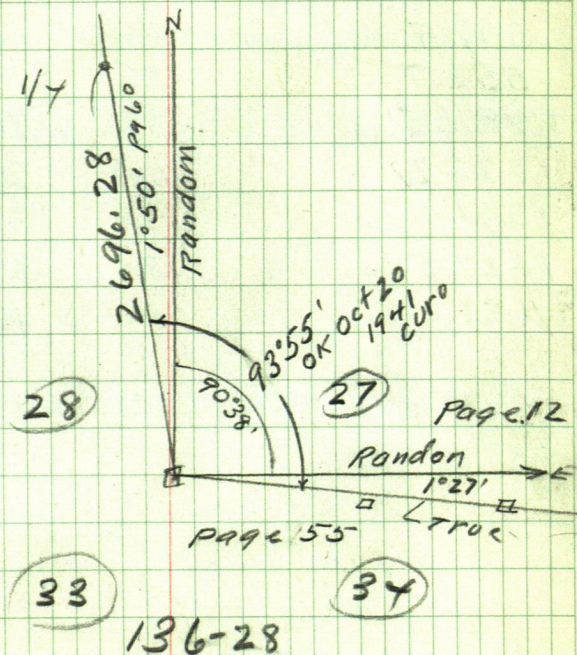 N
1/4
2696.28
1°50' Pg 60
Random
93°55'
OK Oct 20
1941
90°38'
28
27
Page.12
Randon
E
1°27'
True
Page 55
33
34
136-28